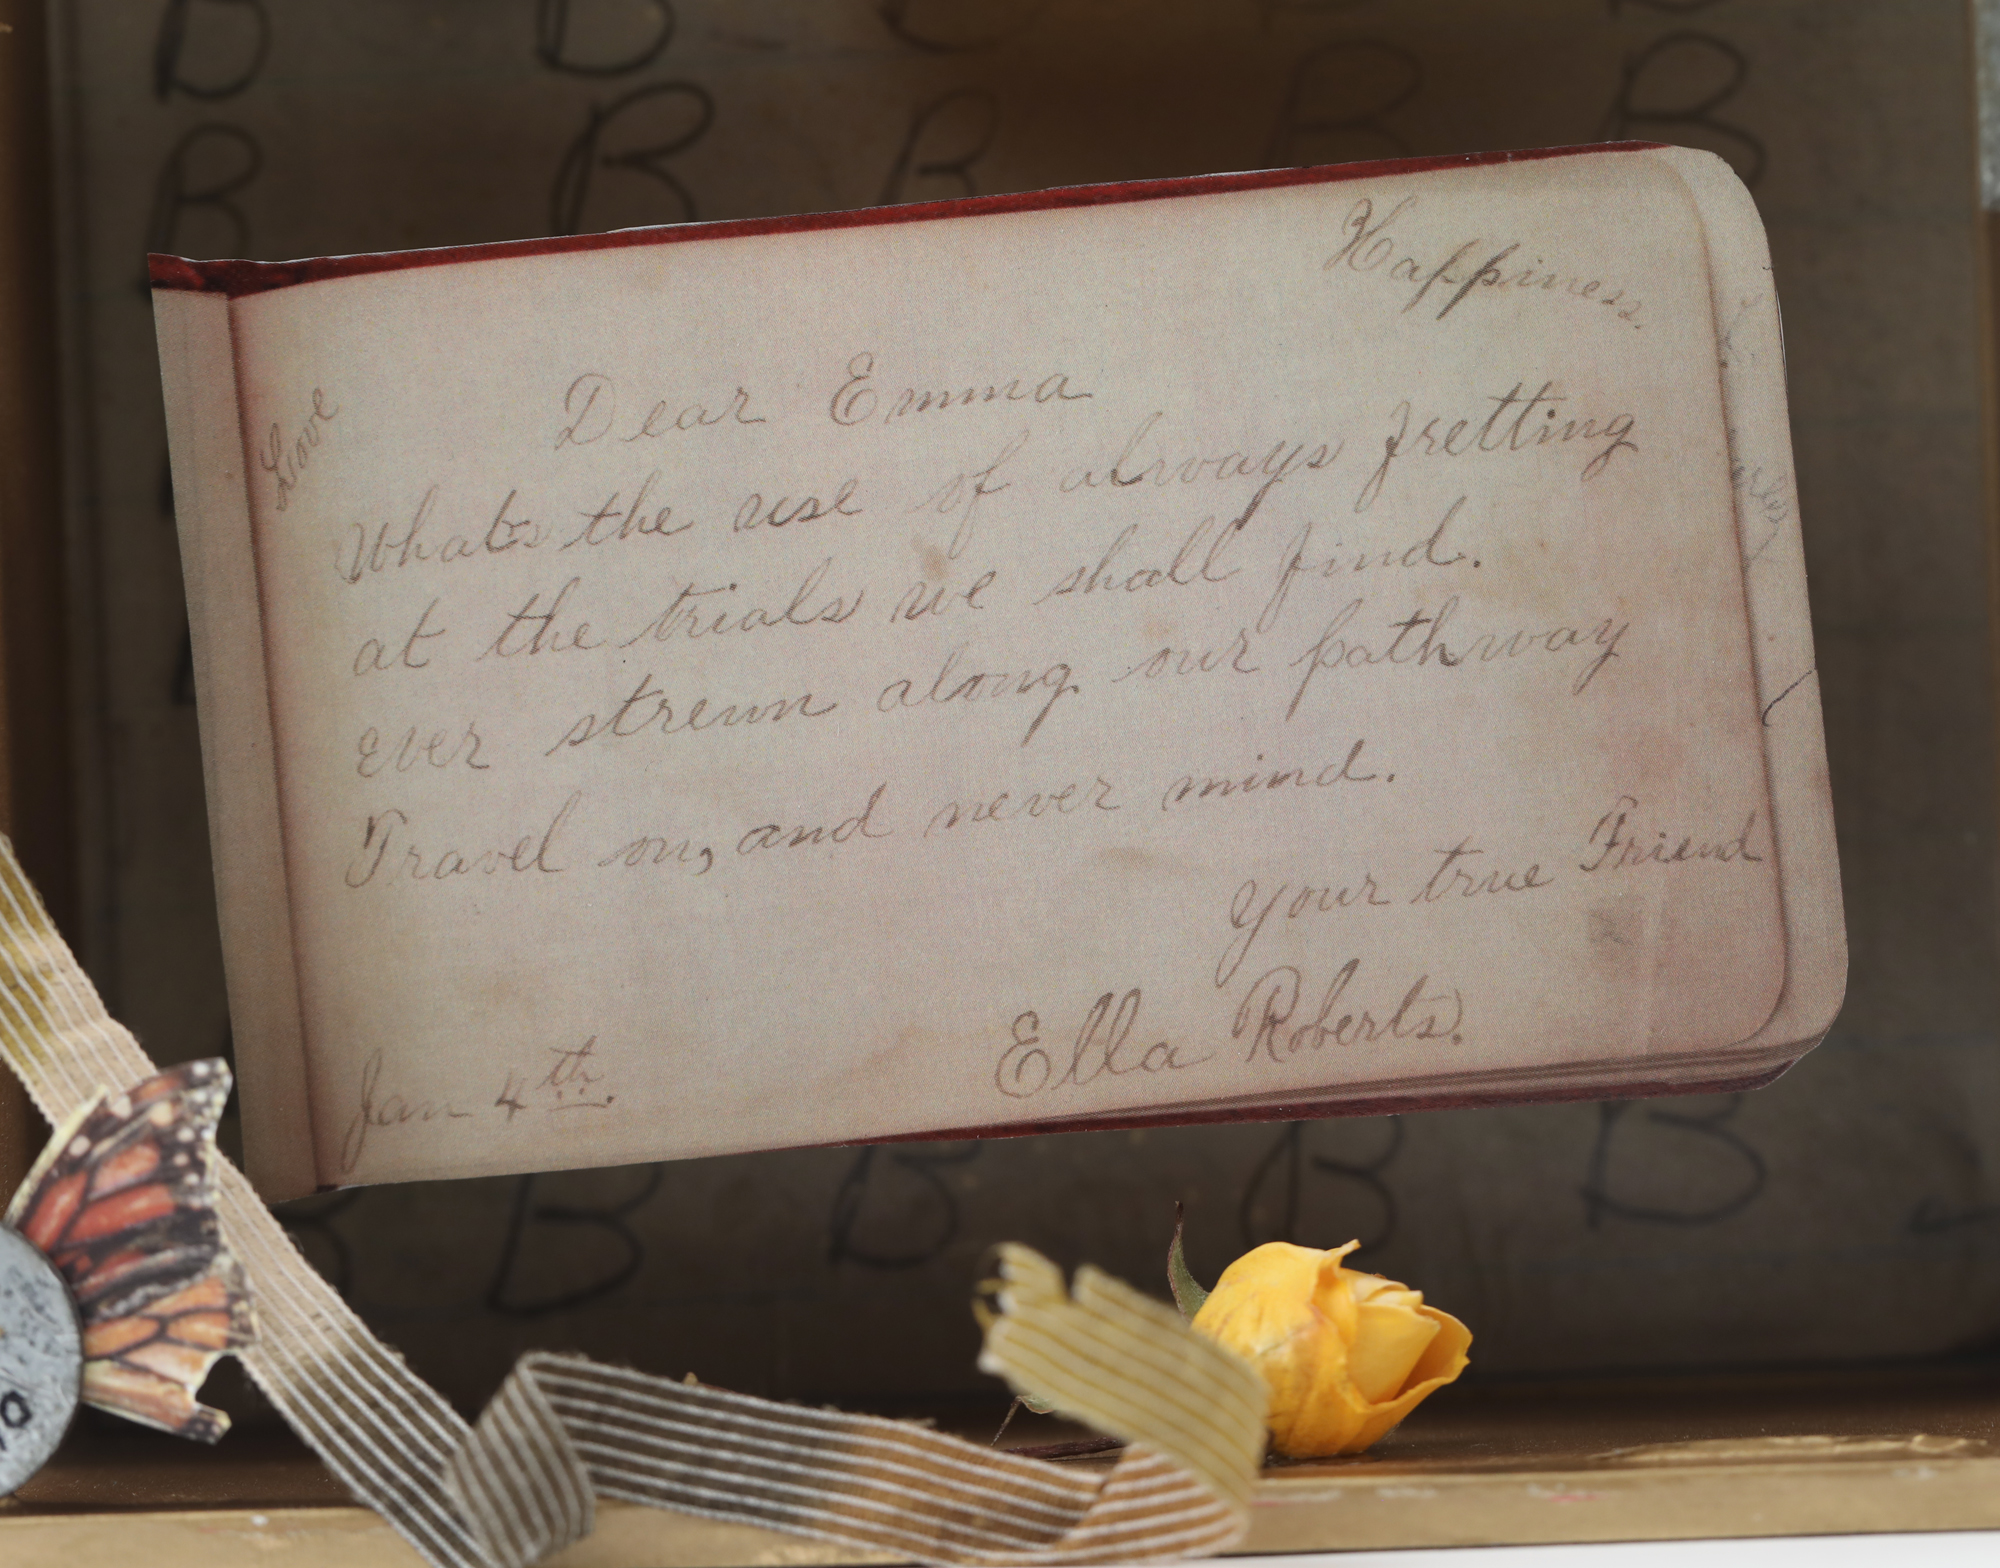 Happiness.
Love
Dear Emma
What's the use of always fretting
at the trials we shall find.
ever strewn along our pathway
Travel on, and never mind.
Your true Friend
Ella Roberts.
Jan 4th.
B B
B B B B B
B B B B B